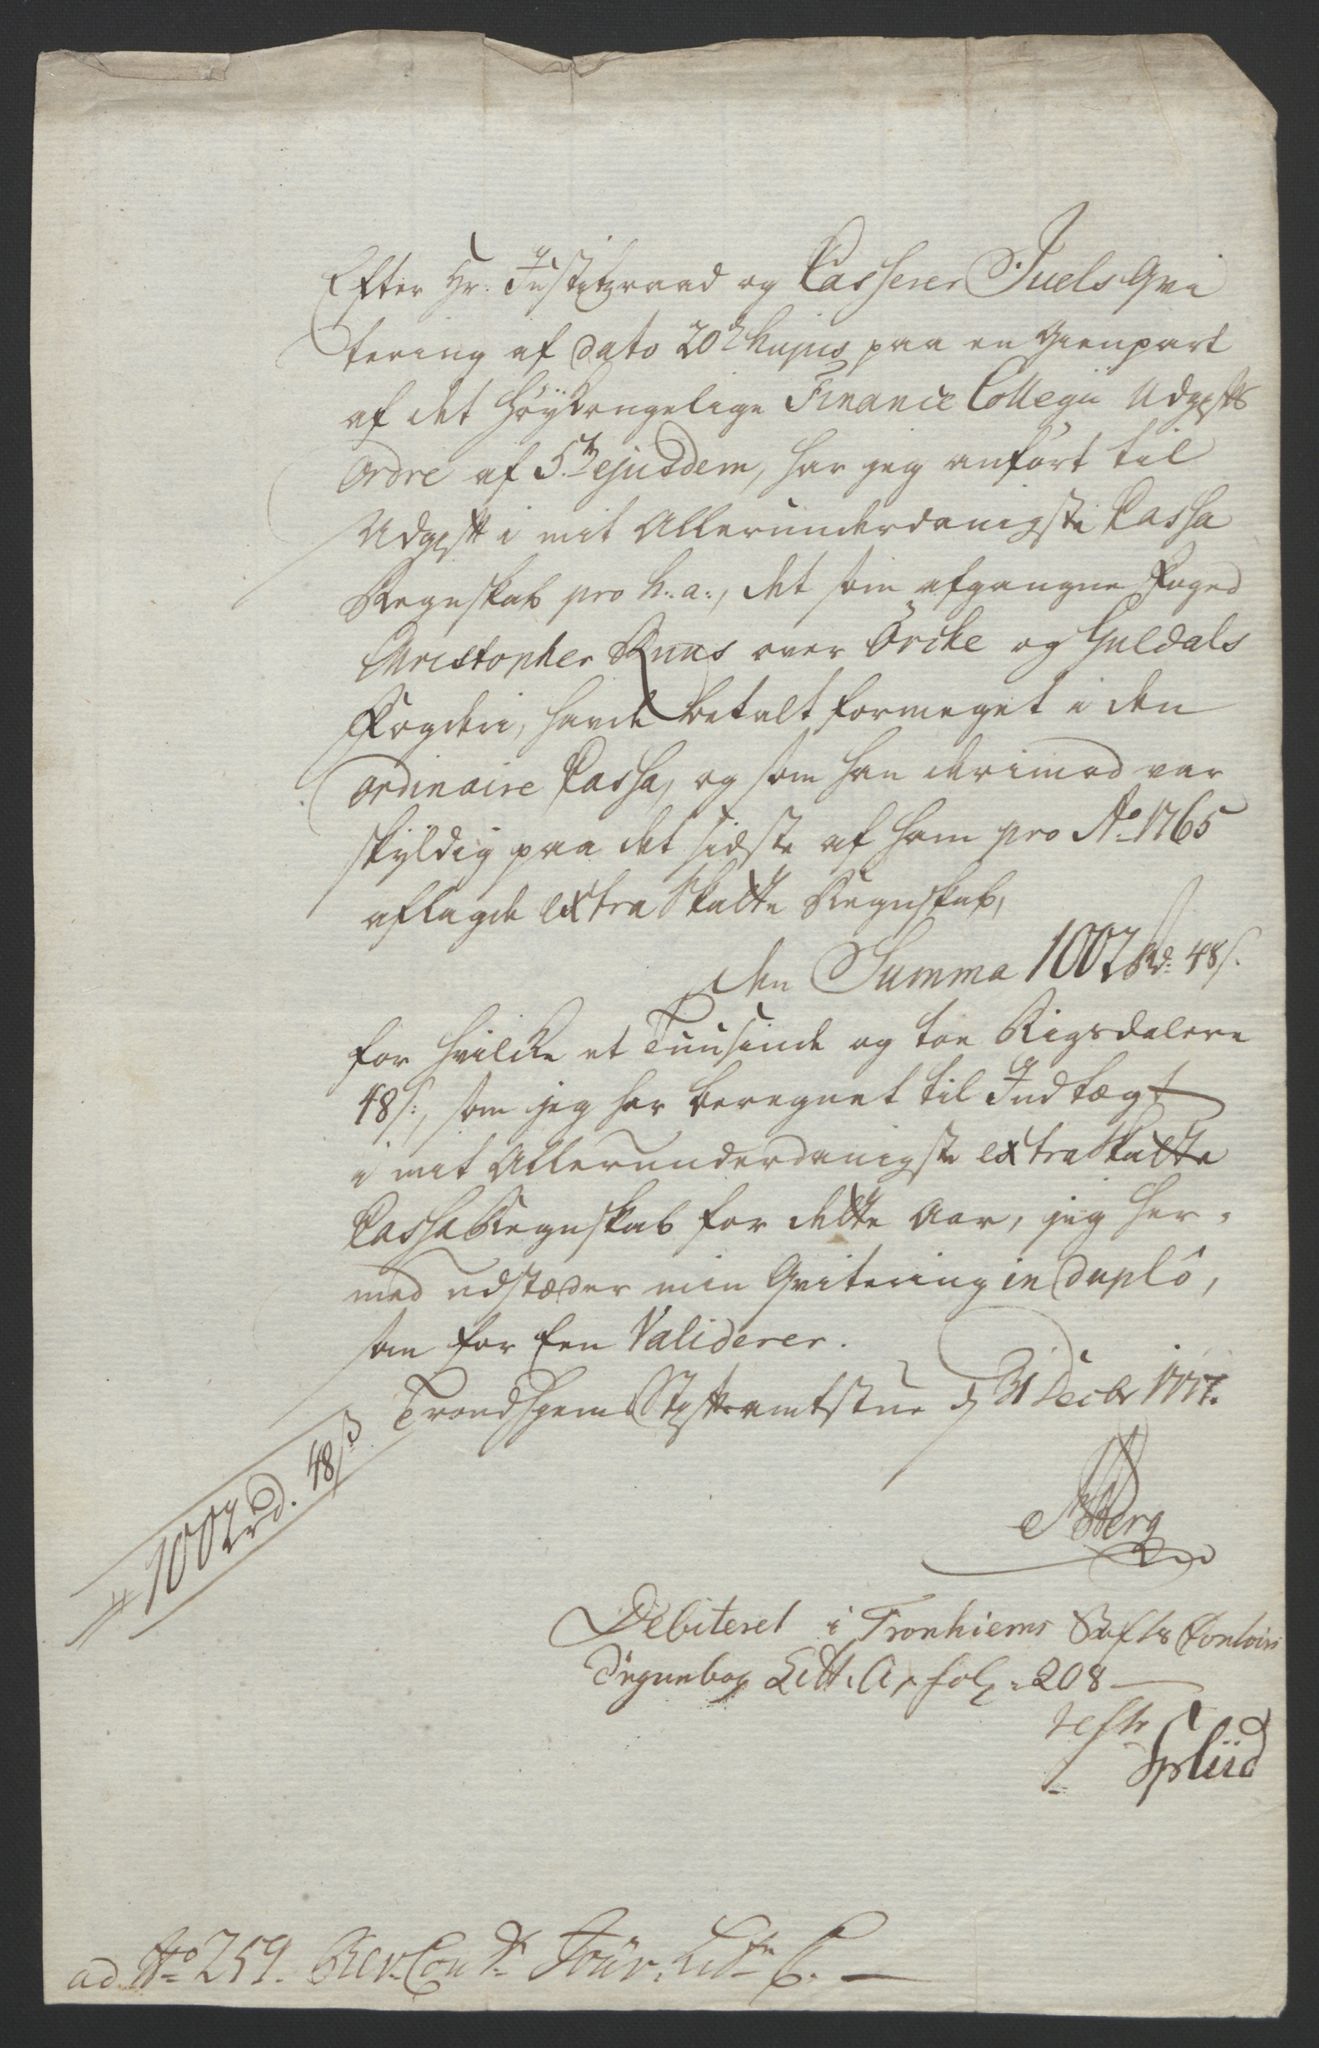 Efter Hr. Justitzraad og Casserer Juels Qvi
tering af dato 20de hujus paa en Gienpart
af det Høykongelige Finance Collegii Udgifts
Ordre af 5te ejusdem, har jeg anført til
Udgift i mit Allerunderdanigste Cassa
Regnskab pro h: a:, det som afgangne Foged
Christopher Ruus over Örcke og Guldals
Fogderi, havde betalt formeget i den
ordinaire Cassa, og som han derimod var
skyldig paa det sidste af ham pro Ao 1765
aflagde extra Skatte Regnskab,
den Summa 1002 Rd. 48 s.
for hvilke et Tuusinde og toe Rigsdalere
48 s:, som jeg har beregnet til Indtægt
i mit Allerunderdanigste extra Skatte
Cassa Regnskab for dette Aar, jeg her-
med udstæder min Qvitering in duplo,
som for Een Validerer.
Trondhjems Stiftamtstue d 31 Decbr 1777.
Berg
1002 rd. 48 s
Debiteret i Tronhiems Stifts Contoirs
Dagnebog Litt. A, fol. 208
teste
Spliid
ad No 259. Rev. Con Jour. Litr. C.